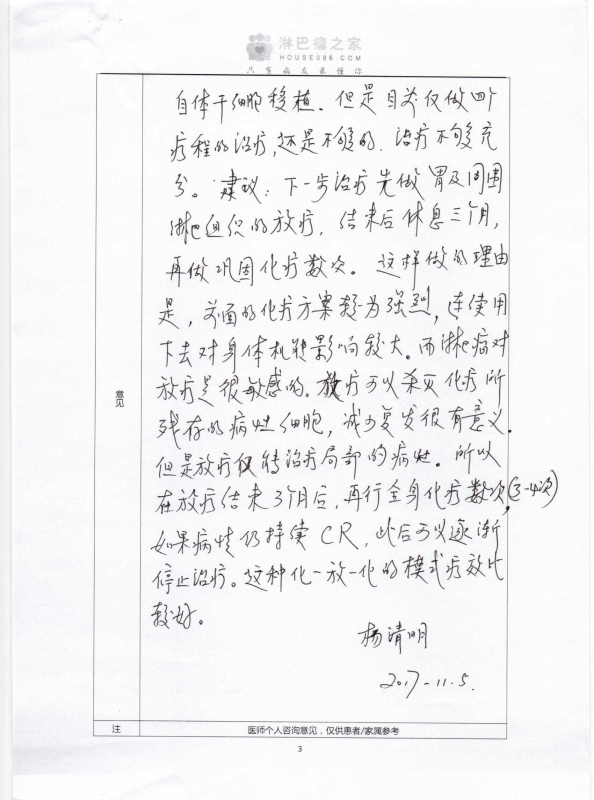 淋巴瘤之家
HOUSE086.COM
只有病友来懂你
自体干细胞移植。但是目前仅做四个
疗程的治疗,还是不够的。治疗不够充
分。建议:下一步治疗先做胃及周围
淋巴组织的放疗,结束后休息三个月,
再做巩固化疗数次。这样做的理由
是,前面的化疗方案较为强烈,连续用
下去对身体机能影响较大。而淋巴瘤对
放疗是很敏感的。放疗可以杀灭化疗所
残存的病灶细胞,减少复发很有意义。
但是放疗仅能治疗局部的病灶。所以
在放疗结束3个月后,再行全身化疗数次,(3-4次)
如果病情仍持续CR,此后可以逐渐
停止治疗。这种化-放-化的模式疗效比
较好。
杨清明
2017-11.5.
意见
注
医师个人咨询意见,仅供患者/家属参考
3